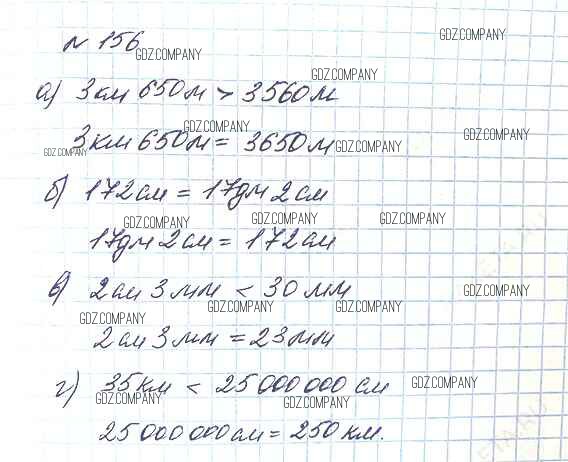 № 156
GDZ.COMPANY
GDZ.COMPANY
GDZ.COMPANY
а) 3км 650м > 3560м
GDZ.COMPANY
GDZ.COMPANY
3км 650м = 3650м
GDZ.COMPANY
GDZ.COMPANY
б) 172см = 17дм 2см
GDZ.COMPANY
GDZ.COMPANY
GDZ.COMPANY
17дм 2см = 172см
в) 2см 3мм < 30мм
GDZ.COMPANY
GDZ.COMPANY
GDZ.COMPANY
GDZ.COMPANY
GDZ.COMPANY
2см 3мм = 23мм
г) 35км < 25 000 000 см
GDZ.COMPANY
GDZ.COMPANY
GDZ.COMPANY
25 000 000 см = 250 км.